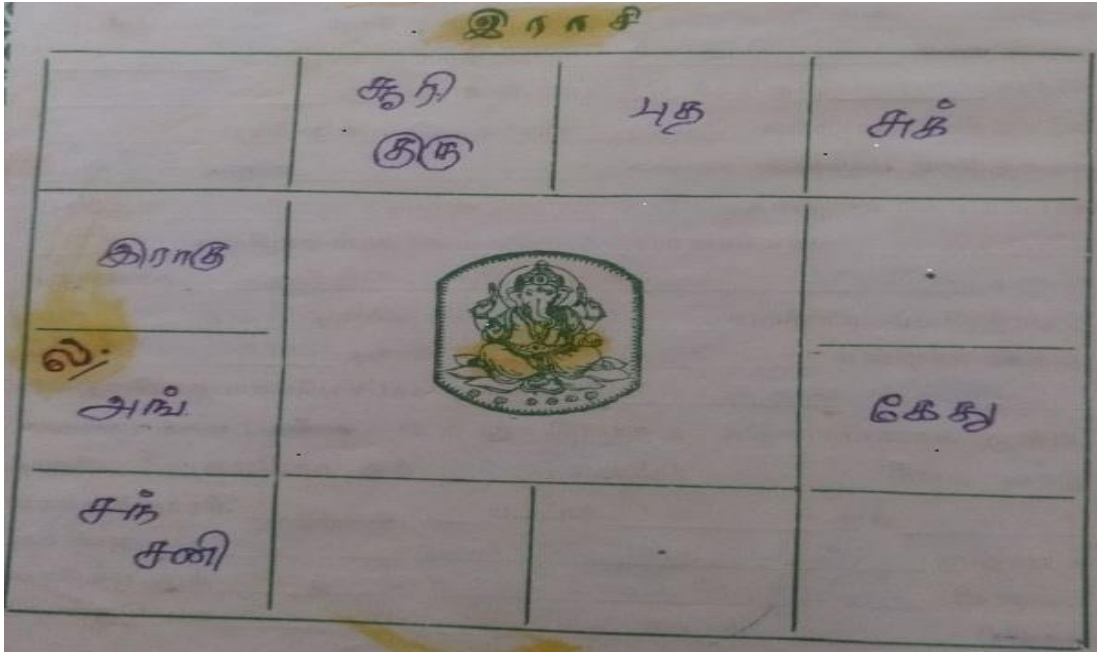 இராசி
சூரி
குரு
புத
சுக்
இராகு
ல/.
அங்.
கேது
சந்
சனி